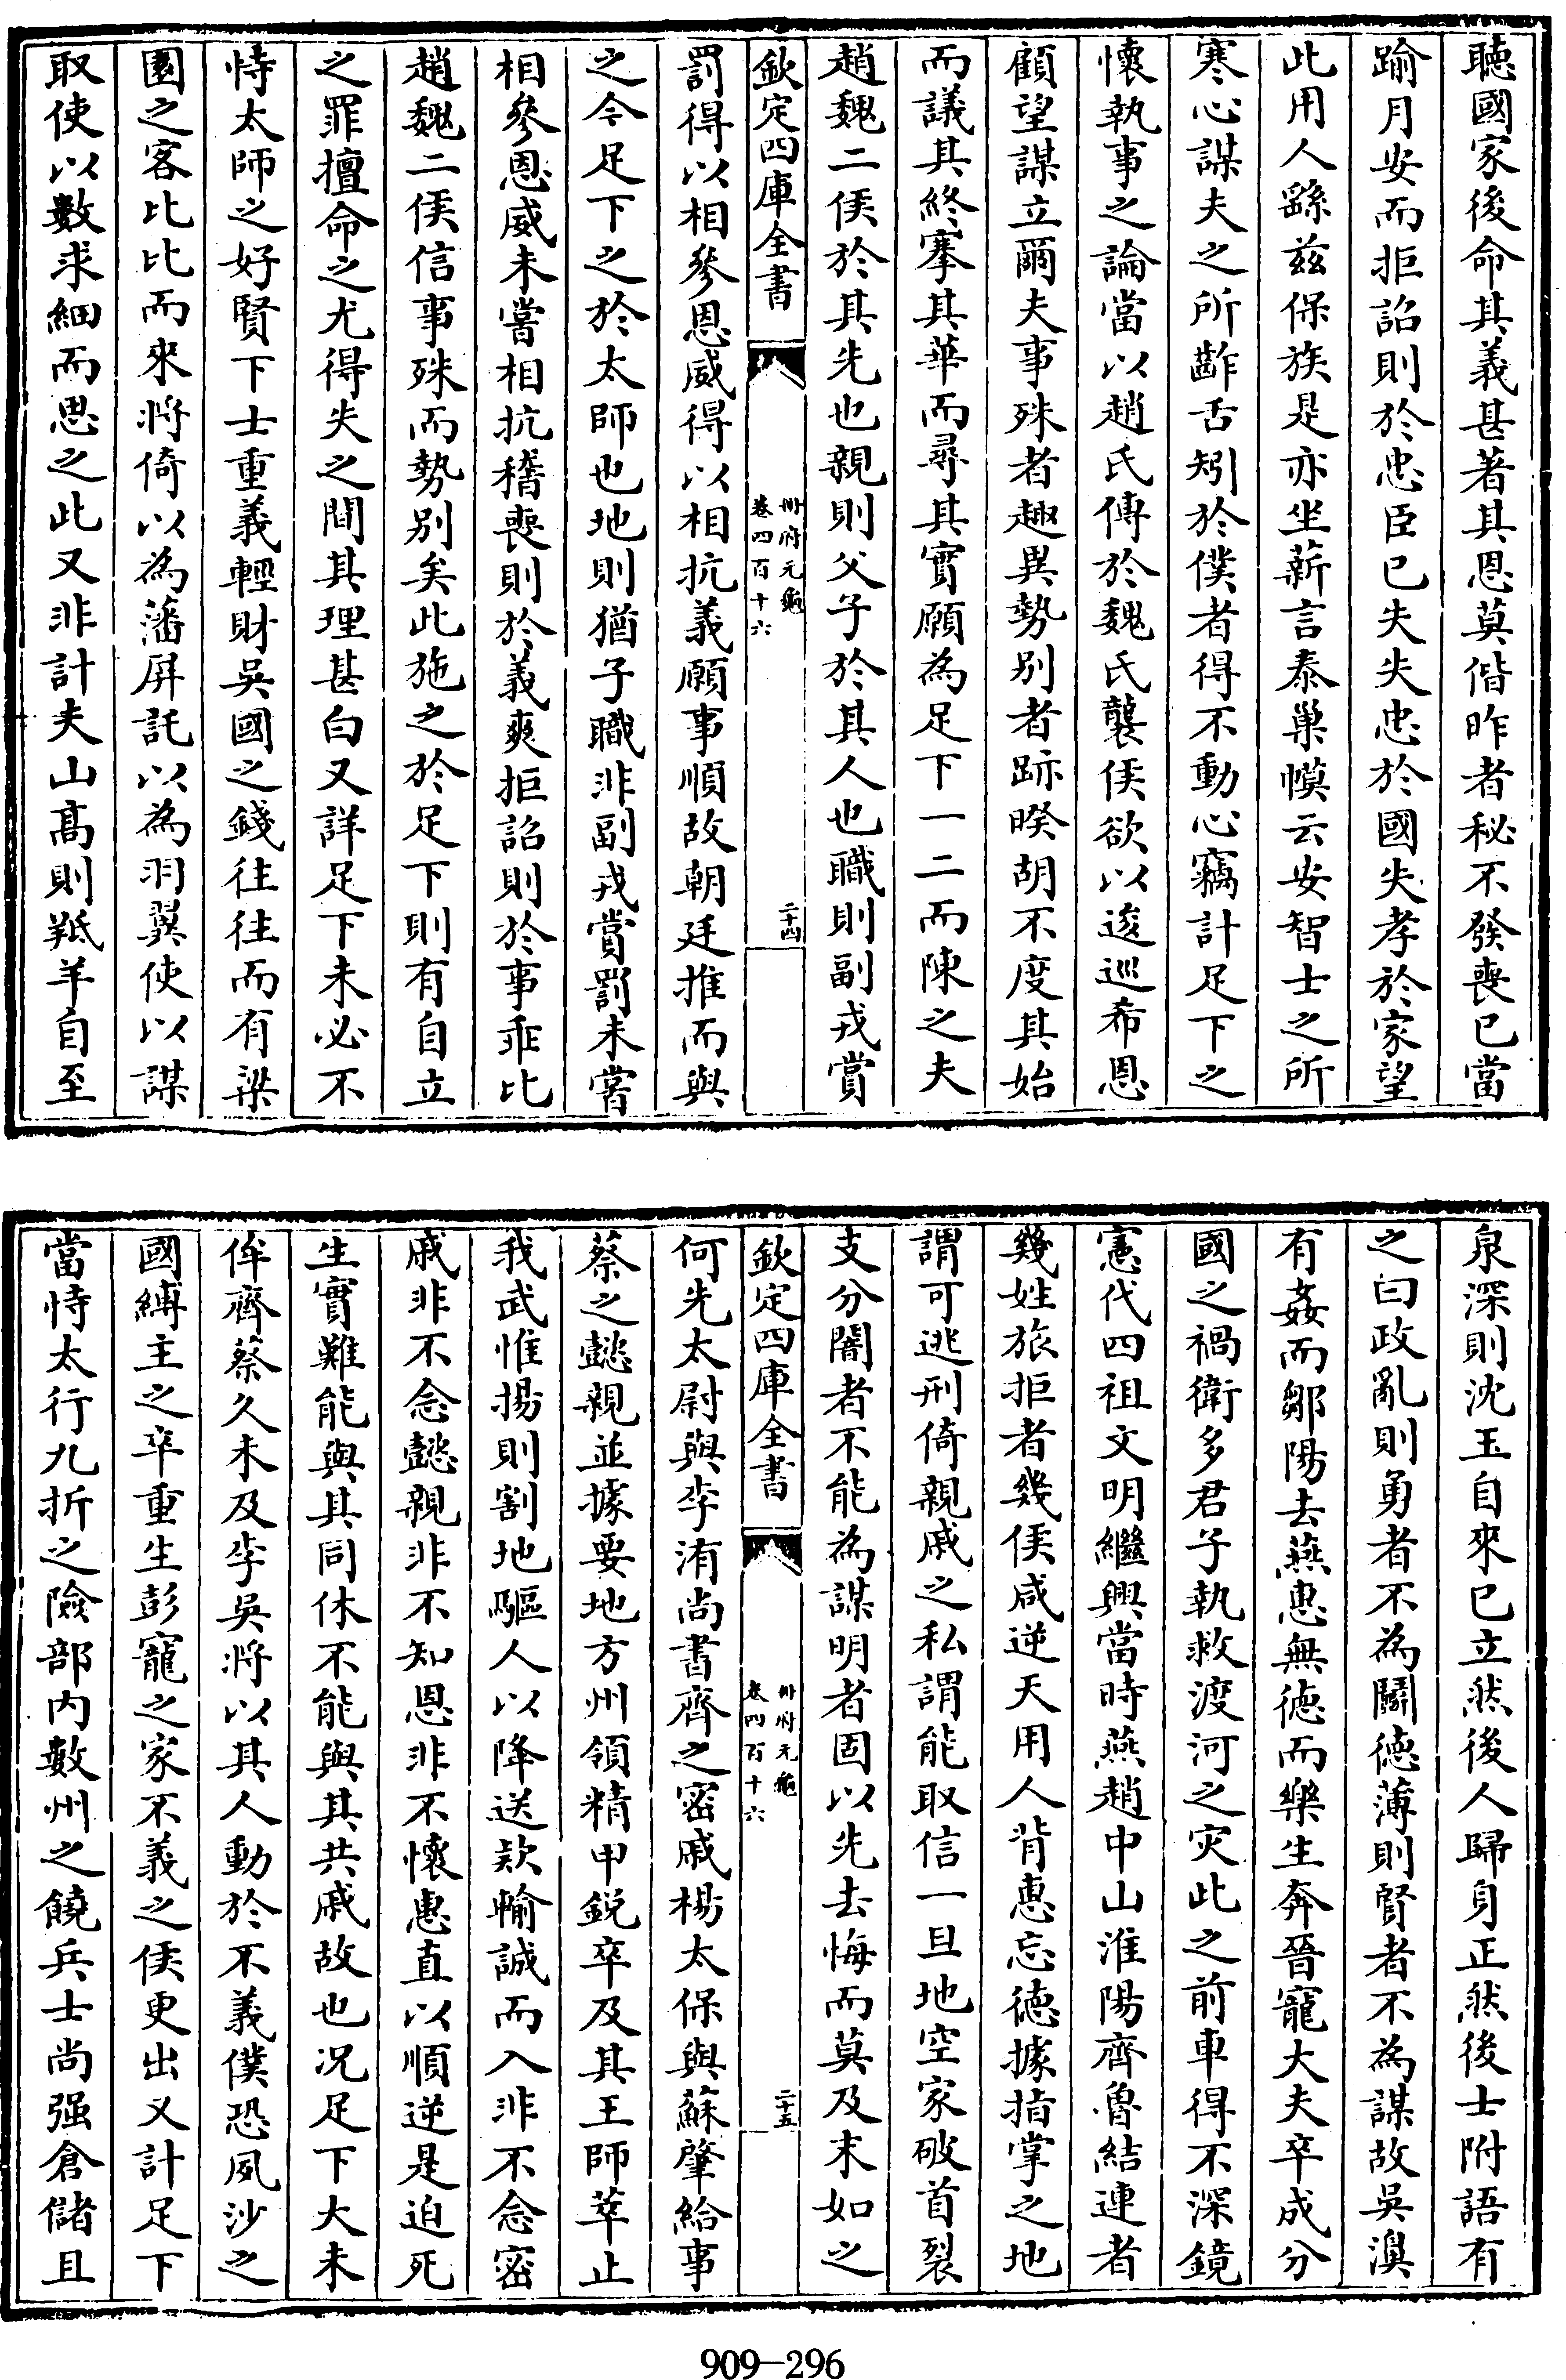 聴國家後命其義甚著其恩莫偕昨者秘不發喪已當
踰月安而拒詔則於忠臣已失失忠於國失孝於家望
此用人繇兹保族是亦坐薪言泰巢幙云安智士之所
寒心謀夫之所齚舌矧於僕者得不動心竊計足下之
懷執事之論當以趙氏傳於魏氏襲侯欲以逡巡布恩
顧望謀立爾夫事殊者趣異勢别者跡睽胡不度其始
而議其終搴其華而尋其實願為足下一二而陳之夫
趙魏二侯於其先也親則父子於其人也職則副戎賞
欽定四庫全書
冊府元龜
卷四百十六
二十四
罰得以相參恩威得以相抗義願事順故朝廷推而與
之今足下之於太師也地則猶子職非副戎賞罰未嘗
相參恩威未嘗相抗稽喪則於義爽拒詔則於事乖比
趙魏二侯信事殊而勢别矣此施之於足下則有自立
之罪擅命之尤得失之間其理甚白又詳足下未必不
恃太師之好賢下士重義輕財吳國之錢往往而有梁
園之客比比而來將倚以為藩屏託以為羽翼使以謀
取使以數求細而思之此又非計夫山髙則羝羊自至
泉深則沈玉自來已立然後人歸身正然後士附語有
之曰政亂則勇者不為鬬徳薄則賢者不為謀故吳濞
有姦而鄒陽去燕惠無徳而樂生奔晉寵大夫卒成分
國之禍衛多君子執救渡河之灾此之前車得不深鏡
憲代四祖文明繼興當時燕趙中山淮陽齊魯結連者
幾姓旅拒者幾侯咸逆天用人背惠忘徳據指掌之地
謂可逃刑倚親戚之私謂能取信一旦地空家破首裂
支分闇者不能為謀明者固以先去悔而莫及末如之
欽定四庫全書
冊府元龜
卷四百十六
二十五
何先太尉與李洧尚書齊之密戚楊太保與蘇肇給事
蔡之懿親並據要地方州領精甲鋭卒及其王師萃止
我武惟揚則割地驅人以降送欵輸誠而入非不念密
戚非不念懿親非不知恩非不懷惠直以順逆是迫死
生實難能與其同休不能與其共戚故也况足下大未
侔齊蔡久未及李吳將以其人動於不義僕恐夙沙之
國縛主之卒重生彭寵之家不義之侯更出又計足下
當恃太行九折之險部内數州之饒兵士尚强倉儲且
909-296